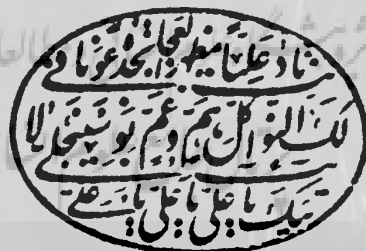 ناد عليا مظهر العجائب تجده عونا في
لك النوائب كل هم و غم سينجلي بولا
يتك يا علي يا علي يا علي